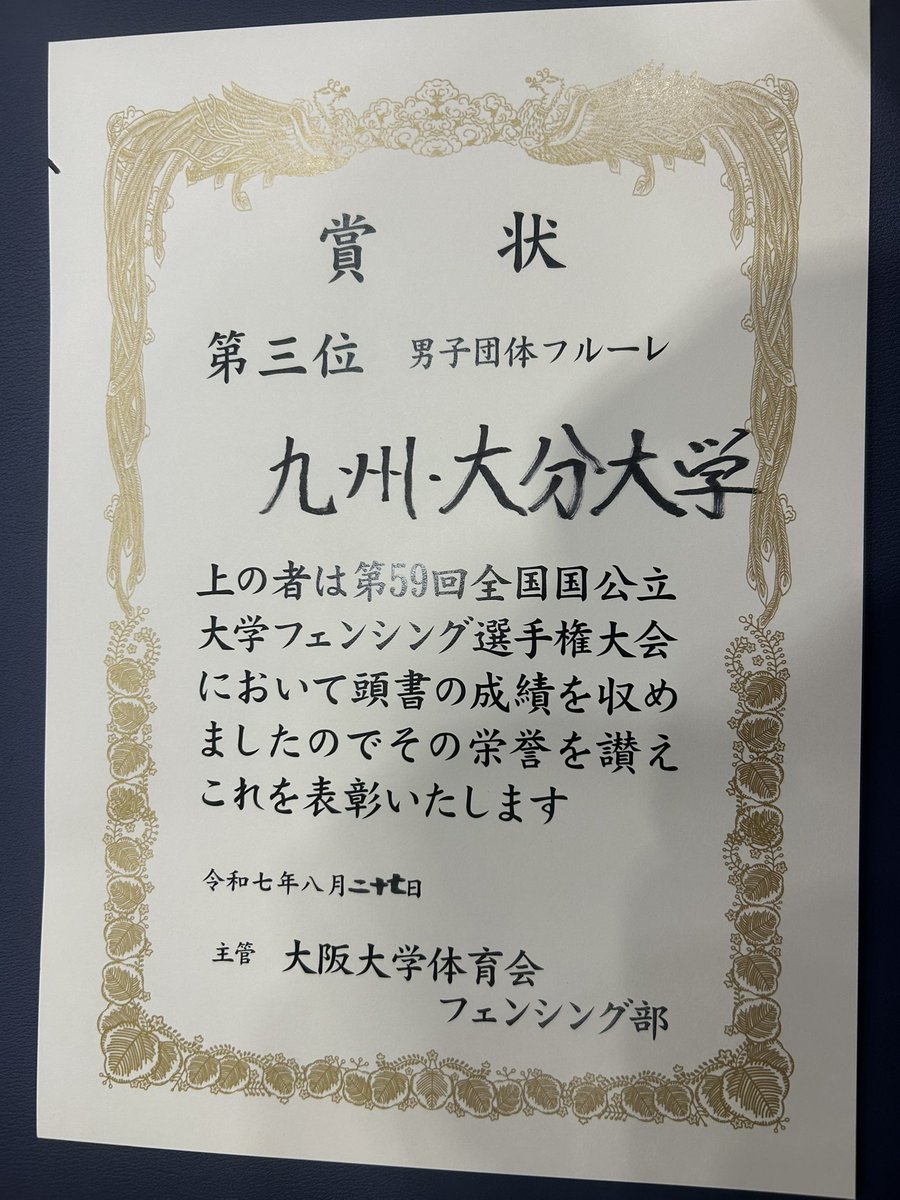 賞状
第三位 男子団体フルーレ
九州・大分大学
上の者は第59回全国国公立
大学フェンシング選手権大会
において頭書の成績を収め
ましたのでその栄誉を讃え
これを表彰いたします
令和七年八月二十七日
主管 大阪大学体育会
フェンシング部